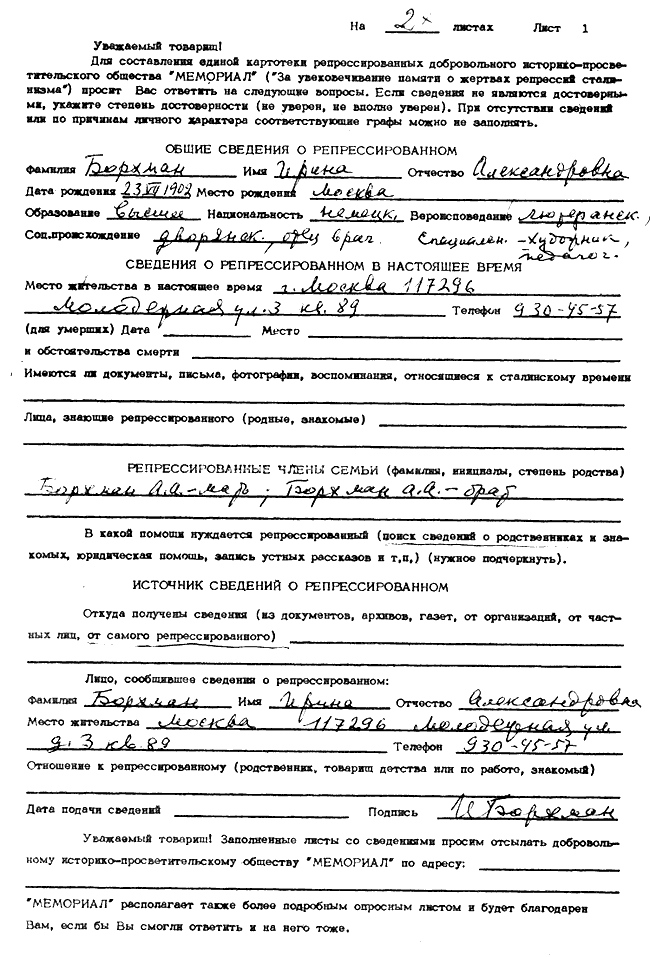 На 2х листах Лист 1
Уважаемый товарищ!
Для составления единой картотеки репрессированных добровольного историко-просве-
тительского общества "МЕМОРИАЛ" ("За увековечивание памяти о жертвах репрессий стали-
низма") просит Вас ответить на следующие вопросы. Если сведения не являются достоверны-
ми, укажите степень достоверности (не уверен, не вполне уверен). При отсутствии сведений
или по причинам личного характера соответствующие графы можно не заполнять.
ОБЩИЕ СВЕДЕНИЯ О РЕПРЕССИРОВАННОМ
Фамилия Борхман Имя Ирина Отчество Александровна
Дата рождения 23 VII 1902 Место рождений Москва
Образование высшее Национальность немецк. Вероисповедание лютеранск.,
Соц.происхождение дворянск., отец врач. Специальн. - художник,
педагог.
СВЕДЕНИЯ О РЕПРЕССИРОВАННОМ В НАСТОЯЩЕЕ ВРЕМЯ
Место жительства в настоящее время г. Москва 117296
Молодежная ул. 3 кв. 89 Телефон 930-45-57
(для умерших) Дата Место
и обстоятельства смерти
Имеются ли документы, письма, фотографии, воспоминания, относящиеся к сталинскому времени
Лица, знающие репрессированного (родные, знакомые)
РЕПРЕССИРОВАННЫЕ ЧЛЕНЫ СЕМЬИ (фамилия, инициалы, степень родства)
Борхман А.А.-мать; Борхман А.А.-брат
В какой помощи нуждается репрессированный (поиск сведений о родственниках и зна-
комых, юридическая помощь, запись устных рассказов и т.п,) (нужное подчеркнуть).
ИСТОЧНИК СВЕДЕНИЙ О РЕПРЕССИРОВАННОМ
Откуда получены сведения (из документов, архивов, газет, от организаций, от част-
ных лиц, от самого репрессированного)
Лицо, сообщившее сведения о репрессированном:
Фамилия Борхман Имя Ирина Отчество Александровна
Место жительства Москва 117296 Молодежная ул.
д. 3 кв. 89 Телефон 930-45-57
Отношение к репрессированному (родственник, товарищ детства или по работо, знакомый)
Дата подачи сведений Подпись И Борхман
Уважаемый товарищ! Заполненные листы со сведениями просим отсылать доброволь-
ному историко-просветительскому обществу "МЕМОРИАЛ" по адресу:
"МЕМОРИАЛ" располагает также более подробным опросным листом и будет благодарен
Вам, если бы Вы смогли ответить и на него тоже.